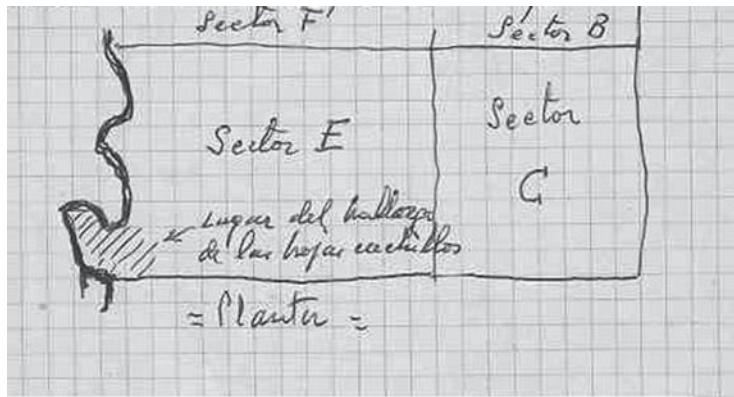 Sector F'
Sector B
Sector E
Sector
C
Lugar del hallazgo
de las hojas cuchillos
= Planta =